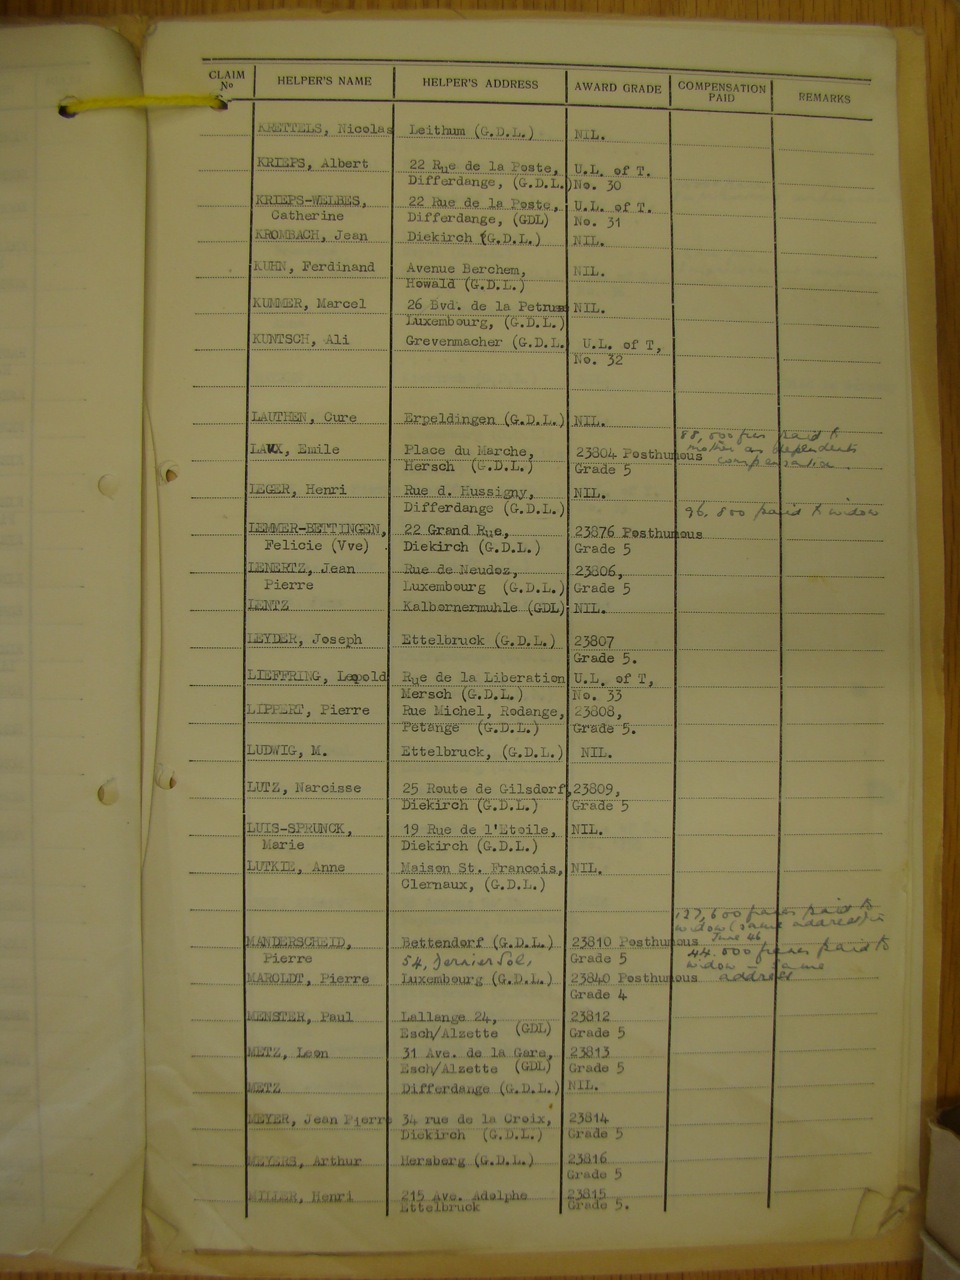 CLAIM No HELPER'S NAME HELPER'S ADDRESS AWARD GRADE COMPENSATION PAID REMARKS
KRETTELS, Nicolas Leithum (G.D.L.) NIL.
KRIEPS, Albert 22 Rue de la Poste, U.L. of T.
Differdange, (G.D.L.) No. 30
KRIEPS-WELBES, 22 Rue de la Poste, U.L. of T.
Catherine Differdange, (GDL) No. 31
KROMBACH, Jean Diekirch (G.D.L.) NIL.
KUHN, Ferdinand Avenue Berchem, NIL.
Howald (G.D.L.)
KUMMER, Marcel 26 Bvd. de la Petruss NIL.
Luxembourg, (G.D.L.)
KUNTSCH, Ali Grevenmacher (G.D.L. U.L. of T,
No. 32
LAUTHEN, Cure Erpeldingen (G.D.L.) NIL.
88,000 frcs paid to
LAUX, Emile Place du Marche, 23804 Posthumous mother as dependents
Mersch (G.D.L.) Grade 5 compensation.
LEGER, Henri Rue d. Hussigny, NIL.
Differdange (G.D.L.) 96,800 paid to widow
LEMMER-BETTINGEN, 22 Grand Rue, 23876 Posthumous
Felicie (Vve) Diekirch (G.D.L.) Grade 5
LENERTZ, Jean Rue de Neudoz, 23806,
Pierre Luxembourg (G.D.L.) Grade 5
LENTZ Kalbornermuhle (GDL) NIL.
LEYDER, Joseph Ettelbruck (G.D.L.) 23807
Grade 5.
LIEFFRING, Leopold Rue de la Liberation U.L. of T,
Mersch (G.D.L.) No. 33
LIPPERT, Pierre Rue Michel, Rodange, 23808,
Petange (G.D.L.) Grade 5.
LUDWIG, M. Ettelbruck, (G.D.L.) NIL.
LUTZ, Narcisse 25 Route de Gilsdorf, 23809,
Diekirch (G.D.L.) Grade 5
LUIS-SPRUNCK, 19 Rue de l'Etoile, NIL.
Marie Diekirch (G.D.L.)
LUTKIE, Anne Maison St. Francois, NIL.
Clernaux, (G.D.L.)
127,600 francs paid to
widow (same address) in
June 46
MANDERSCHEID, Bettendorf (G.D.L.) 23810 Posthumous 44.000 francs paid to
Pierre 54, Grade 5 widow - same
MAROLDT, Pierre Luxembourg (G.D.L.) 23840 Posthumous address
Grade 4
MENSTER, Paul Lallange 24, 23812
Esch/Alzette (GDL) Grade 5
METZ, Leon 31 Ave. de la Gare, 23813
Esch/Alzette (GDL) Grade 5
METZ Differdange (G.D.L.) NIL.
MEYER, Jean Pierre 34 rue de la Croix, 23814
Diekirch (G.D.L.) Grade 5
MEYERS, Arthur Hersberg (G.D.L.) 23816
Grade 5
MILLER, Henri 215 Ave. Adolphe 23815
Ettelbruck Grade 5.